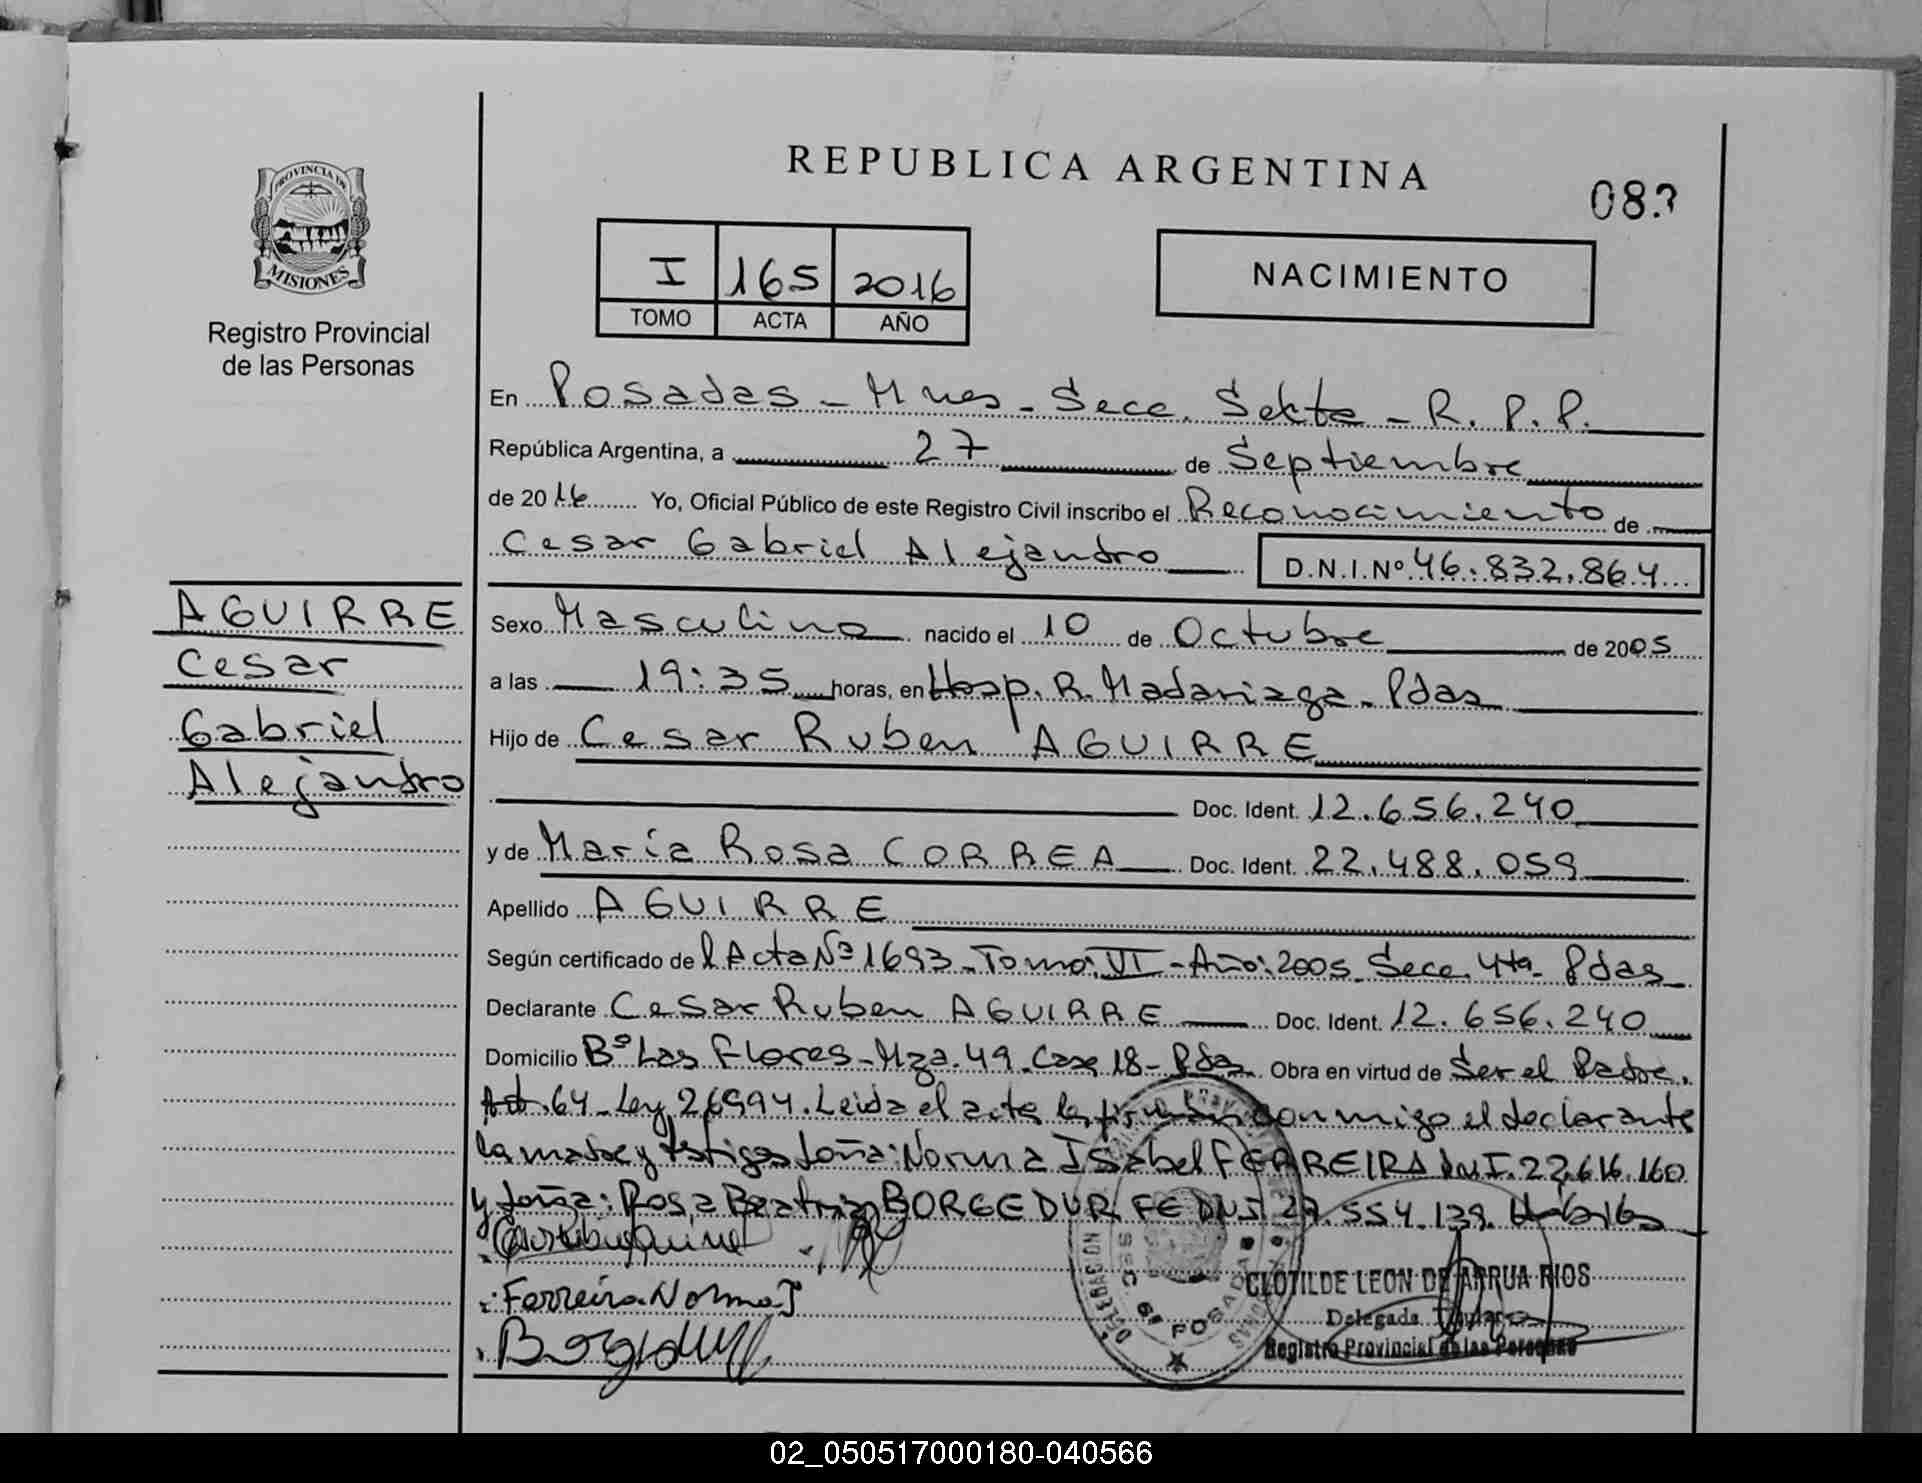 REPUBLICA ARGENTINA
083
PROVINCIA DE
MISIONES
Registro Provincial
de las Personas
I 165 2016
TOMO ACTA AÑO
NACIMIENTO
En Posadas - Mnes - Secc. Sexta - R. P. P.
República Argentina, a 27 de Septiembre
de 2016 Yo, Oficial Público de este Registro Civil inscribo el Reconocimiento de
Cesar Gabriel Alejandro D.N.I.Nº 46.832.864
AGUIRRE
Cesar
Gabriel
Alejandro
Sexo Masculino nacido el 10 de Octubre de 2005
a las 19:35 horas, en Hosp. R. Madariaga - Pdas
Hijo de Cesar Ruben AGUIRRE
Doc. Ident. 12.656.240
y de María Rosa CORREA Doc. Ident. 22.488.059
Apellido AGUIRRE
Según certificado de l Acta Nº 1693 - Tomo: VI - Año: 2005 Secc. 4ta - Pdas
Declarante Cesar Ruben AGUIRRE Doc. Ident. 12.656.240
Domicilio Bº Las Flores - Mza. 49 - Casa 18 - Pdas Obra en virtud de Ser el Padre.
Art. 64 - Ley 26994. Leida el acta la firman conmigo el declarante
la madre y testigos doña: Norma Isabel FERREIRA D.N.I. 22.616.160
y doña: Rosa Beatriz BORGEDURFE DNI 27.554.139.
Ferreira Norma I
DELEGACION
SEC. 6ª POSADAS
CLOTILDE LEON DE ARRUA RIOS
Delegada Titular
Registro Provincial de las Personas
02_050517000180-040566